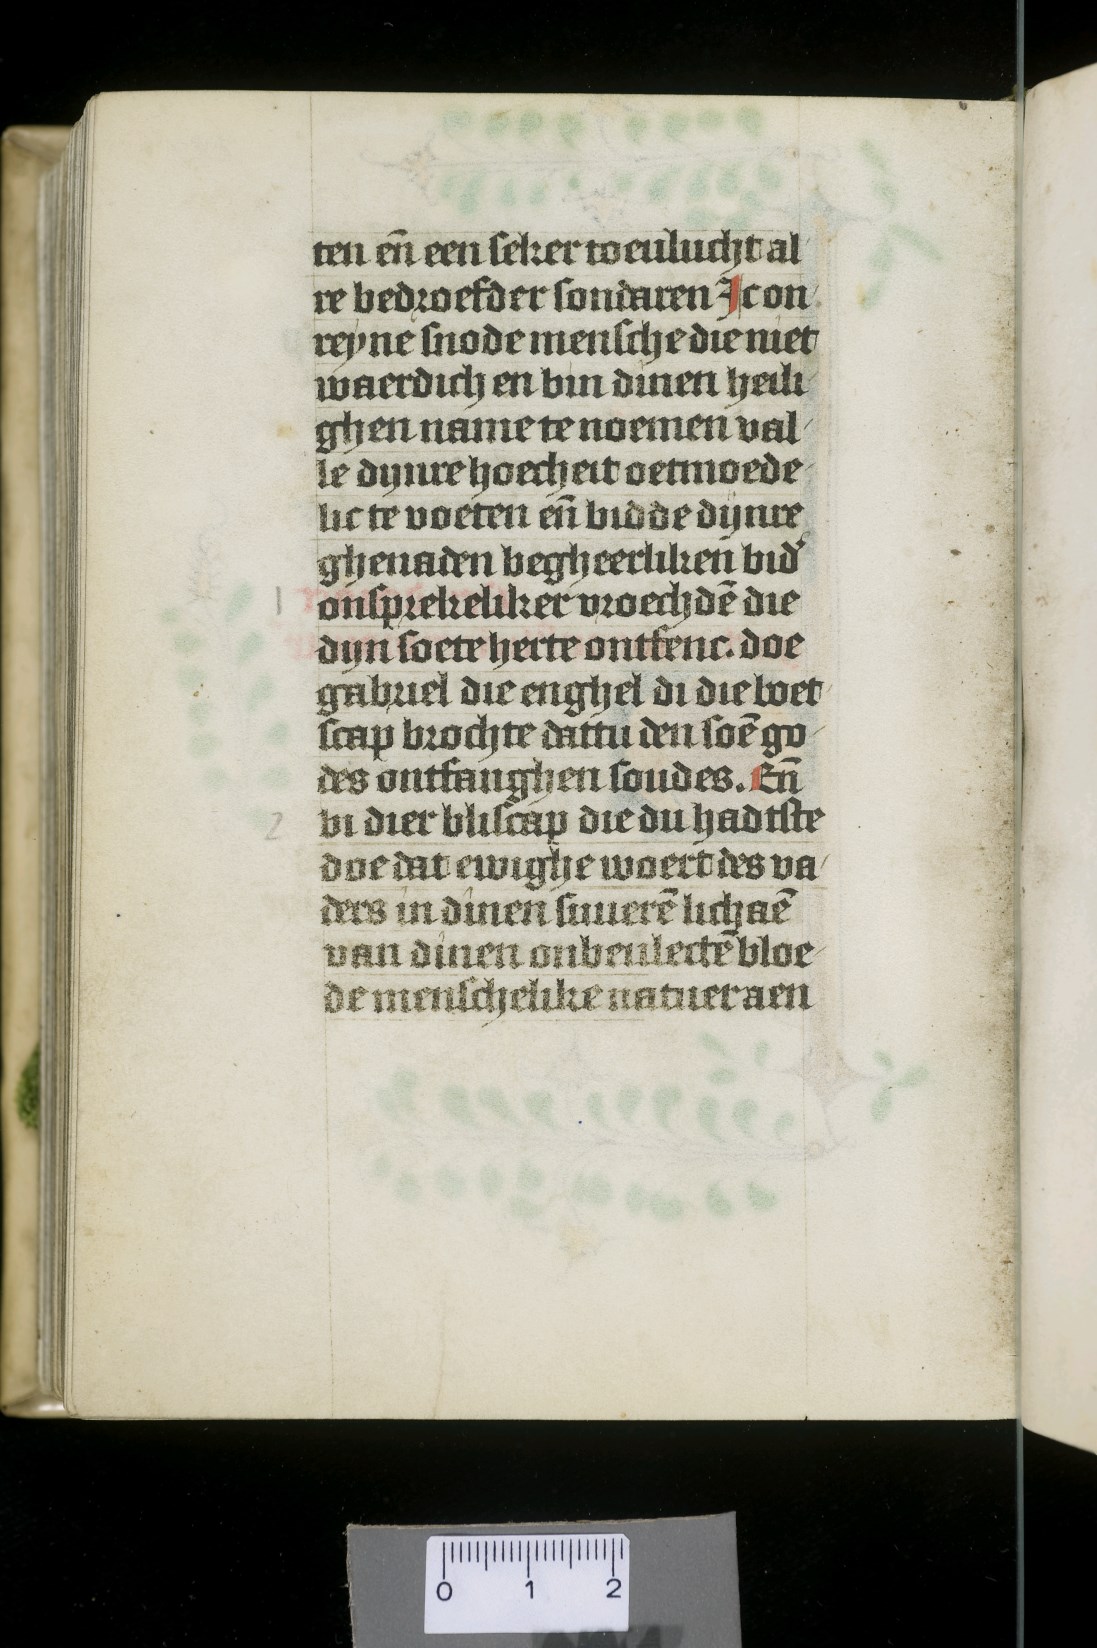 ten en̄ een seker toeulucht al
re bedroefder sondaren Ic on
reyne snode mensche die niet
waerdich en bin dinen heili
ghen name te noemen val
le dijnre hoecheit oetmoede
lic te voeten en̄ bidde dijnre
ghenaden begheerliken bid'
onsprekeliker vroechdē die
dijn soete herte ontfenc. doe
gabriel die enghel di die boet
scap brochte dattu den soē go
des ontfanghen soudes. En̄
bi dier bliscap die du hadtste
doe dat ewighe woert des va
ders in dinen suuerē lichaē
van dinen onbeulectē bloe
de menschelike natuer aen
1
2
0 1 2